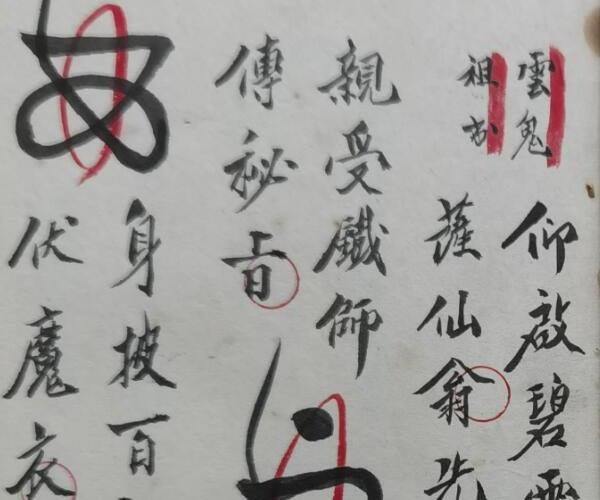 雲鬼
祖
仰啟碧
薩仙翁先
親受鐵師
傳秘旨
身披百
伏魔衣